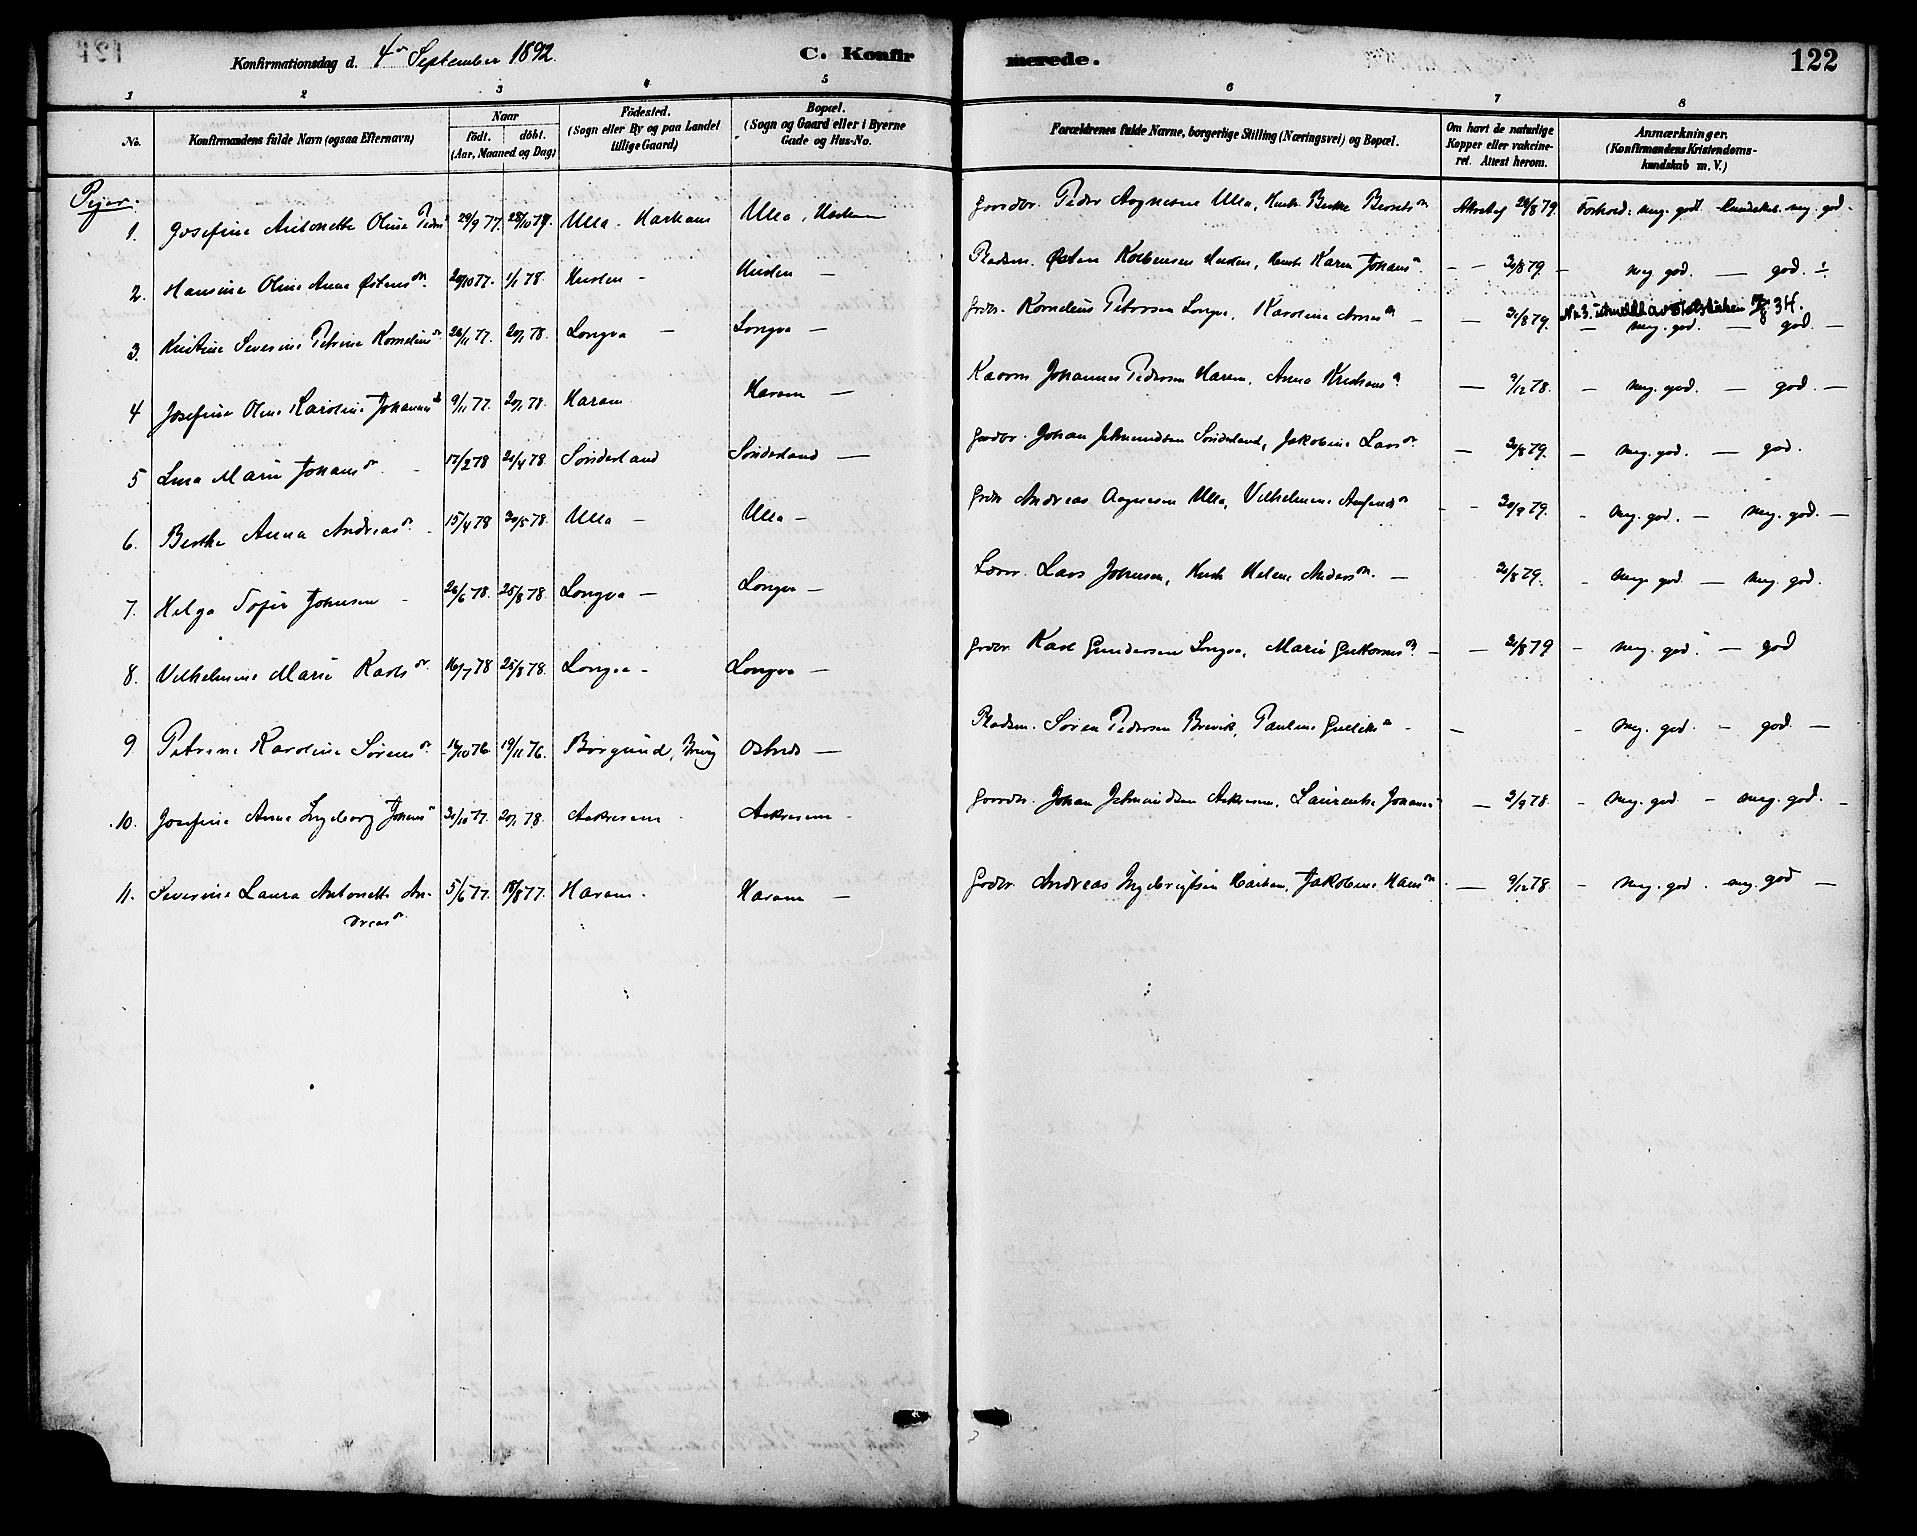 Konfirmationsdag d. 4de September 1892.
C. Konfir
merede.
122
1 2 3 4 5 6 7 8
No.
Konfirmandens fulde Navn (ogsaa Efternavn)
Naar
födt. döbt.
(Aar, Maaned og Dag)
Födested.
(Sogn eller By og paa Landet
tillige Gaard)
Bopæl.
(Sogn og Gaard eller i Byerne
Gade og Hus-No.
Forældrenes fulde Navne, borgerlige Stilling (Næringsvei) og Bopæl.
Om havt de naturlige
Kopper eller vakcine-
ret. Attest herom.
Anmærkninger.
(Konfirmandens Kristendoms-
kundskab m. V.)
Piger.
1. Josefine Antonette Oline Peders 29/9 77. 28/10 77. Ulla, Harhaus Ulla, Gaardbr. Peder Aagnesen Ulla, Berthe 29/8 79. Forhold: meg. godt. Kundskab. meg. god.
2. Hansine Oline Anna Østensdr. 29/10 77. 1/1 78. Husten - Husten — Pladsm. Østen Kolbensen Husten, Karen Johansdr. — 31/8 79 — meg god. — god.
3. Kristine Severine Petrine Korneliusdr. 26/11 77. 20/1 78. Longva — Longva — Grdbr. Kornelius Petersen Longva, Karoline Arnesdr. — 31/8 79. — meg. god. — god —
4 Josefine Oline Karoline Johannesdr. 9/11 77. 20/1 78. Haram Haram — Johannes Pedersen Haram, Anna — 9/12 78. — meg. god. — god. —
5 Lina Marie Johansdr. - 17/2 78 21/4 78. Sönderland Sönderland — Gardbr. Johan Jetmundsen Sönderland, Jakobine Larsdr. — 31/8 79. — meg. god. — god.
6. Berthe Anna Andreasdr. - 15/4 78 30/5 78. Ulla — Ulla — Grdbr. Andreas Aagnesen Ulla, Vilhelmine - 30/9 79. - meg. god. — meg. god. —
7. Helga Sofie Johnsen - 26/6 78. 25/8 78. Longva — Longva — Lærer. Lars Johnsen, Helene Andersdr. — 31/8 79. - meg. god. — meg. god.
8. Vilhelmine Marie Karlsdr. 16/7 78 25/8 78. Longva - Longva — Grdbr. Karl Gundersen Longva, Marie — 31/8 79 - meg. god. — god
9 Petrine Karoline Sørensdr. 10/10 76. 19/11 76. Borgund, Østnes — Pladsm. Søren Pedersen Brevik, Pauline - — - meg. god. — god —
10. Josefine Anna Ingeborg Johans 31/10 77. 20/1 78. Aakresem Aakresem - Gaardbr. Johan Jetmundsen Aakresem, Laurentse Johans — 2/9 78. - meg. god - meg. god. —
11. Severine Laura Antonette An- 5/6 77. 18/8 77. Haram - Haram — Grdbr. Andreas Ingebrigtsen Jakobine Hansdr. — 9/12 78. - meg. god. meg god —
dreasdr.